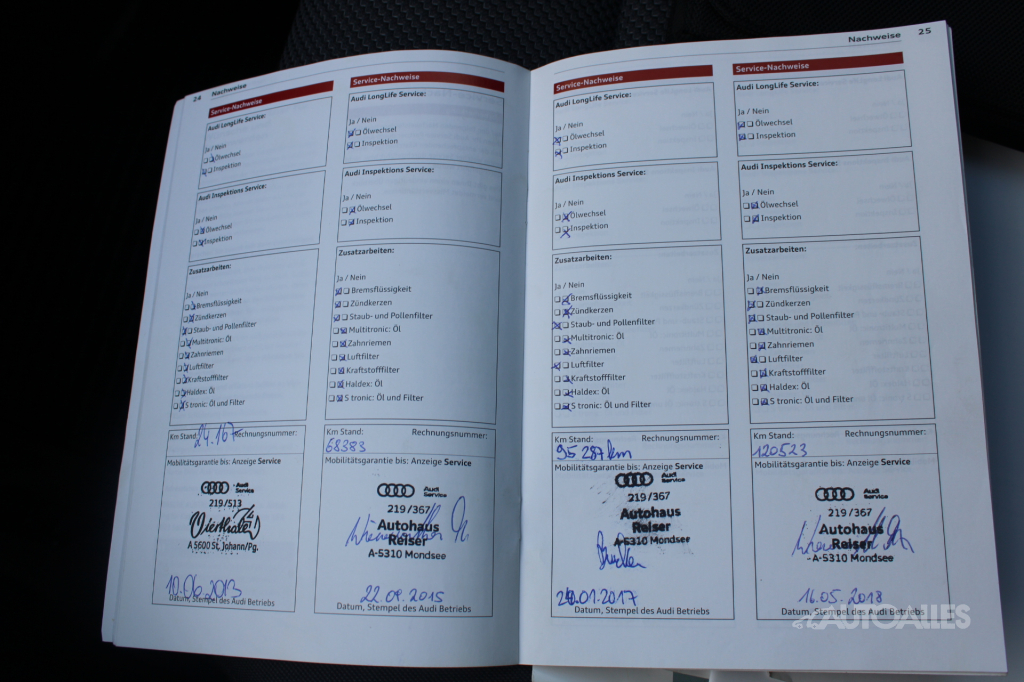 24 Nachweise
Service-Nachweise
Audi LongLife Service:
Ja / Nein
Ölwechsel
Inspektion
Audi Inspektions Service:
Ja / Nein
Ölwechsel
Inspektion
Zusatzarbeiten:
Ja / Nein
Bremsflüssigkeit
Zündkerzen
Staub- und Pollenfilter
Multitronic: Öl
Zahnriemen
Luftfilter
Kraftstofffilter
Haldex: Öl
S tronic: Öl und Filter
Km Stand: Rechnungsnummer:
24.167
Mobilitätsgarantie bis: Anzeige Service
Audi
Service
219/513
Vierthaler
A 5600 St. Johann/Pg.
10.06.2013
Datum, Stempel des Audi Betriebs
Service-Nachweise
Audi LongLife Service:
Ja / Nein
Ölwechsel
Inspektion
Audi Inspektions Service:
Ja / Nein
Ölwechsel
Inspektion
Zusatzarbeiten:
Ja / Nein
Bremsflüssigkeit
Zündkerzen
Staub- und Pollenfilter
Multitronic: Öl
Zahnriemen
Luftfilter
Kraftstofffilter
Haldex: Öl
S tronic: Öl und Filter
Km Stand: Rechnungsnummer:
68383
Mobilitätsgarantie bis: Anzeige Service
Audi
Service
219/367
Autohaus
Reiser
A-5310 Mondsee
22.09.2015
Datum, Stempel des Audi Betriebs
Nachweise 25
Service-Nachweise
Audi LongLife Service:
Ja / Nein
Ölwechsel
Inspektion
Audi Inspektions Service:
Ja / Nein
Ölwechsel
Inspektion
Zusatzarbeiten:
Ja / Nein
Bremsflüssigkeit
Zündkerzen
Staub- und Pollenfilter
Multitronic: Öl
Zahnriemen
Luftfilter
Kraftstofffilter
Haldex: Öl
S tronic: Öl und Filter
Km Stand: Rechnungsnummer:
95 287 km
Mobilitätsgarantie bis: Anzeige Service
Audi
Service
219/367
Autohaus
Reiser
A-5310 Mondsee
.01.2017
Datum, Stempel des Audi Betriebs
Service-Nachweise
Audi LongLife Service:
Ja / Nein
Ölwechsel
Inspektion
Audi Inspektions Service:
Ja / Nein
Ölwechsel
Inspektion
Zusatzarbeiten:
Ja / Nein
Bremsflüssigkeit
Zündkerzen
Staub- und Pollenfilter
Multitronic: Öl
Zahnriemen
Luftfilter
Kraftstofffilter
Haldex: Öl
S tronic: Öl und Filter
Km Stand: Rechnungsnummer:
120523
Mobilitätsgarantie bis: Anzeige Service
Audi
Service
219/367
Autohaus
Reiser
A-5310 Mondsee
16.05.2018
Datum, Stempel des Audi Betriebs
AUTOALLES